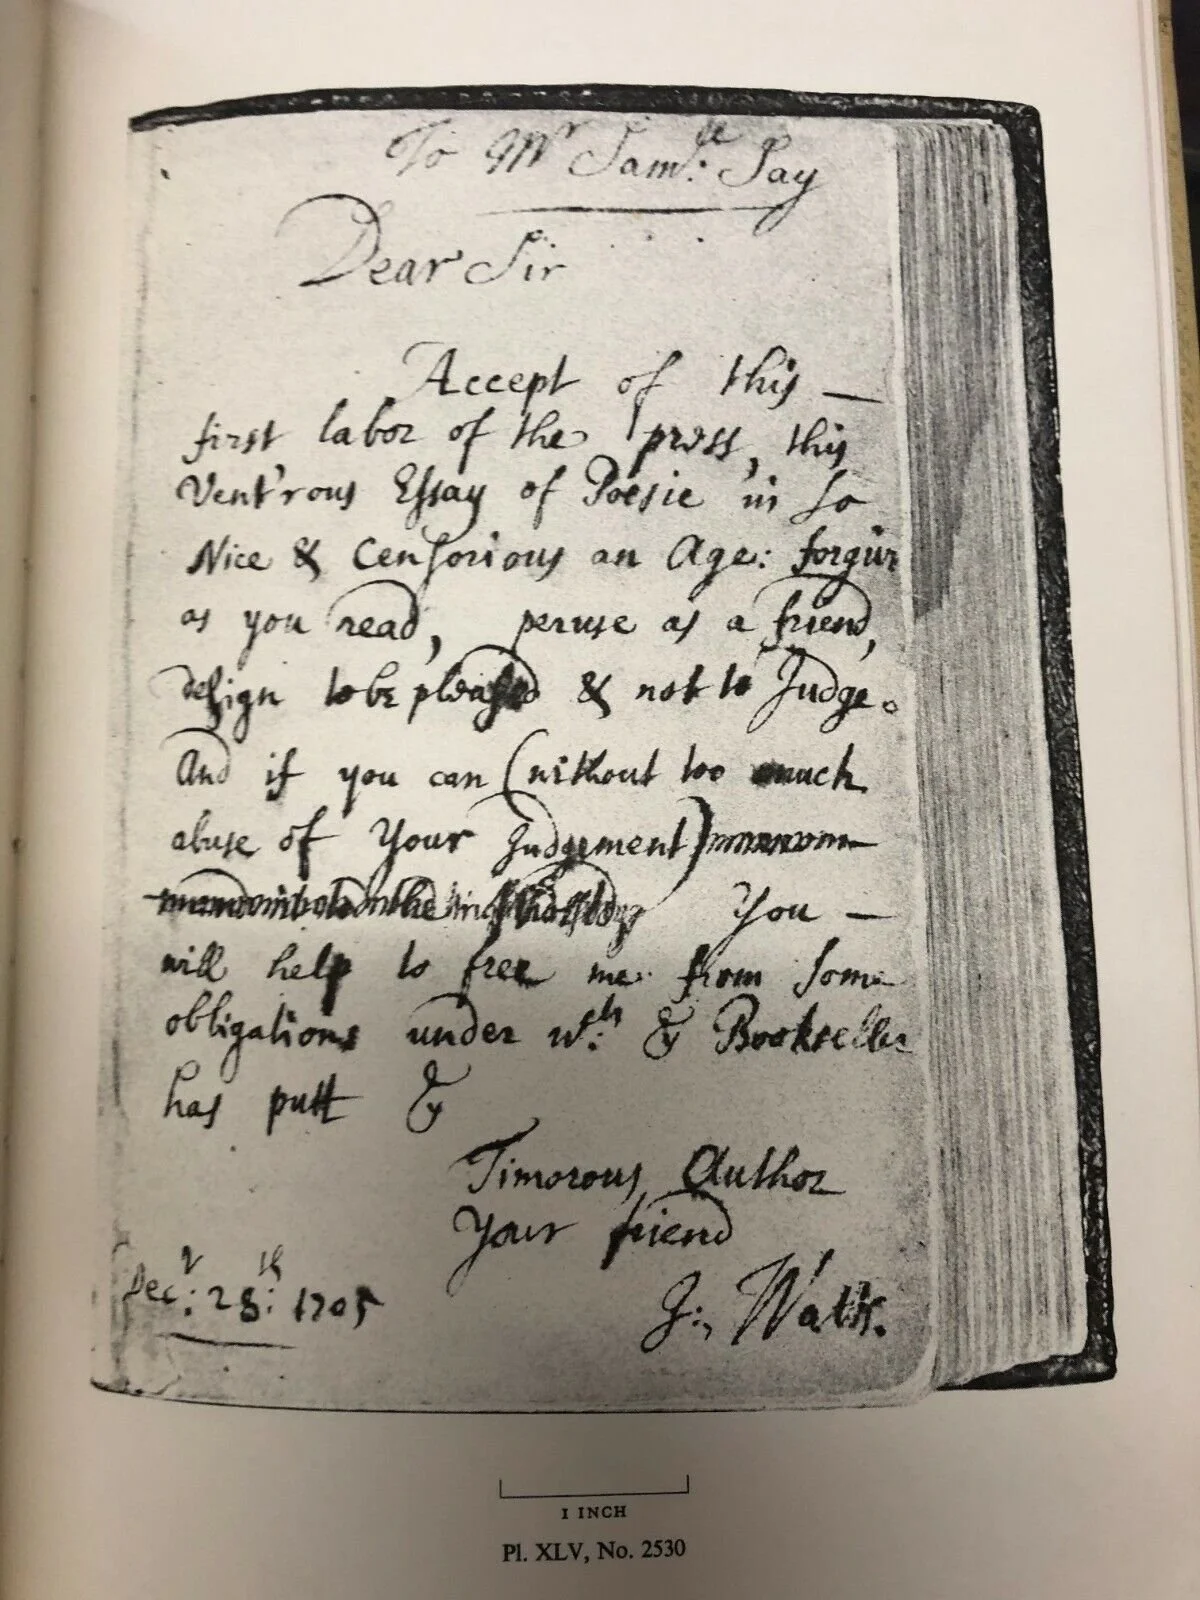 To Mr Samll: Say
Dear Sir
Accept of this —
first labor of the press, this
Vent'rous Essay of Poesie in so
Nice & Censorious an Age: forgive
as you read, peruse as a friend,
design to be pleased & not to Judge.
And if you can (without too much
abuse of Your Judgement)
You —
will help to free me from some
obligations under wch: ye Bookseller
has putt ye
Timorous Author
Your friend
Decr: 28th: 1705
J:, Watts.
1 INCH
Pl. XLV, No. 2530